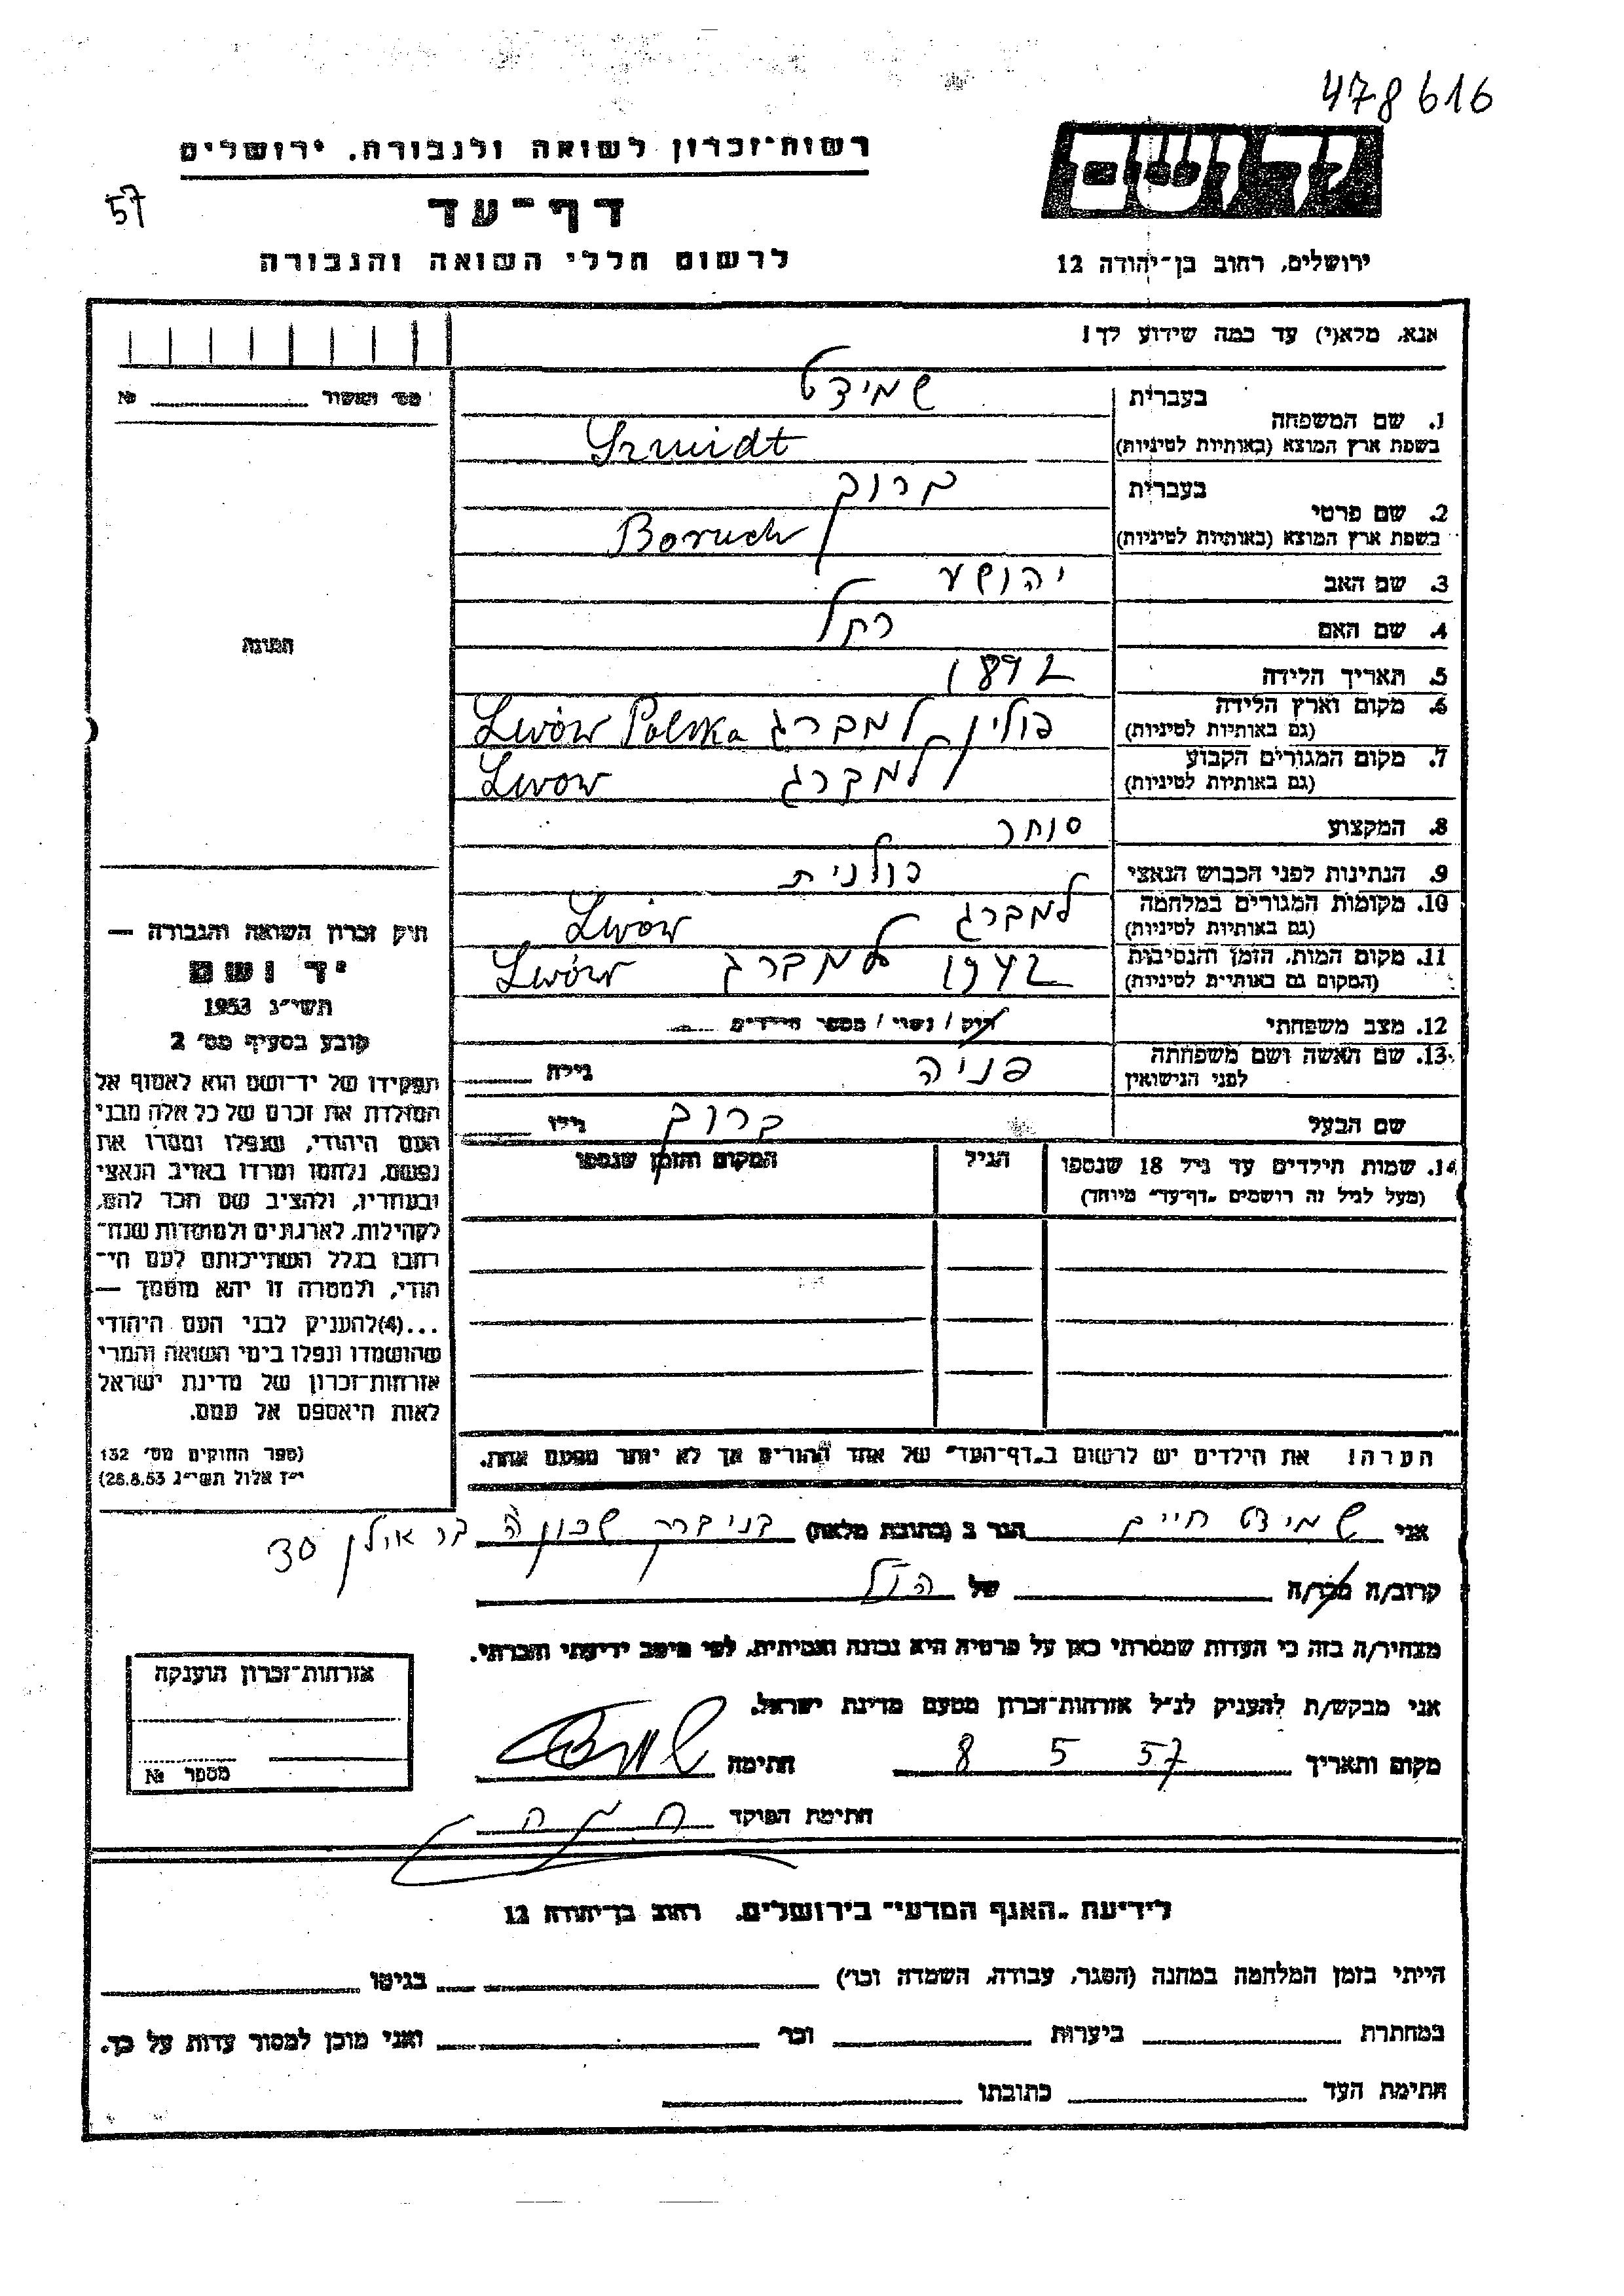 478616
יד ושם
רשות־זכרון לשואה ולגבורה, ירושלים
57
דף־עד
ירושלים, רחוב בן־יהודה 12
לרשום חללי השואה והגבורה
אנא, מלא(י) עד כמה שידוע לך!
מס' האשור №
1. שם המשפחה בעברית שמידט
בשפת ארץ המוצא (באותיות לטיניות) Szmidt
2. שם פרטי בעברית ברוך
בשפת ארץ המוצא (באותיות לטיניות) Boruch
3. שם האב יהושע
4. שם האם רחל
התמונה
5. תאריך הלידה 1892
6. מקום וארץ הלידה (גם באותיות לטיניות) פולין למברג Lwów Polska
7. מקום המגורים הקבוע (גם באותיות לטיניות) למברג Lwow
8. המקצוע סוחר
9. הנתינות לפני הכבוש הנאצי פולנית
10. מקומות המגורים במלחמה (גם באותיות לטיניות) למברג Lwów
11. מקום המות, הזמן והנסיבות (המקום גם באותיות לטיניות) 1942 למברג Lwów
12. מצב משפחתי רוק / נשוי / מספר הילדים
13. שם האשה ושם משפחתה לפני הנישואין פניה גילה
שם הבעל ברוך גילו
14. שמות הילדים עד גיל 18 שנספו הגיל המקום והזמן שנספו
(מעל לגיל זה רושמים "דף־עד" מיוחד)
חוק זכרון השואה והגבורה —
יד ושם
תשי"ג 1953
קובע בסעיף מס' 2
תפקידו של יד־ושם הוא לאסוף אל
המולדת את זכרם של כל אלה מבני
העם היהודי, שנפלו ומסרו את
נפשם, נלחמו ומרדו באויב הנאצי
ובעוזריו, ולהציב שם וזכר להם,
לקהילות, לארגונים ולמוסדות שנח־
רבו בגלל השתייכותם לעם הי־
הודי, ולמטרה זו יהא מוסמך —
...(4)להעניק לבני העם היהודי
שהושמדו ונפלו בימי השואה והמרי
אזרחות־זכרון של מדינת ישראל
לאות היאספם אל עמם.
(ספר החוקים מס' 132
י"ז אלול תשי"ג 28.8.53)
הערה! את הילדים יש לרשום ב"דף־העד" של אחד ההורים אך לא יותר מפעם אחת.
אני שמידט חיים הגר ב (כתובת מלאה) בני ברק שכון ה בר אילן 30
קרוב/ה מכר/ה של הנ"ל
מצהיר/ה בזה כי העדות שמסרתי כאן על פרטיה היא נכונה ואמיתית, לפי מיטב ידיעתי והכרתי.
אני מבקש/ת להעניק לנ"ל אזרחות־זכרון מטעם מדינת ישראל.
מקום ותאריך 8 5 57 חתימה
חתימת הפוקד
אזרחות־זכרון הוענקה
מספר №
לידיעת "האגף המדעי" בירושלים, רחוב בן־יהודה 12
הייתי בזמן המלחמה במחנה (הסגר, עבודה, השמדה וכו') בגיטו
במחתרת ביערות וכו' ואני מוכן למסור עדות על כך.
חתימת העד כתובתו